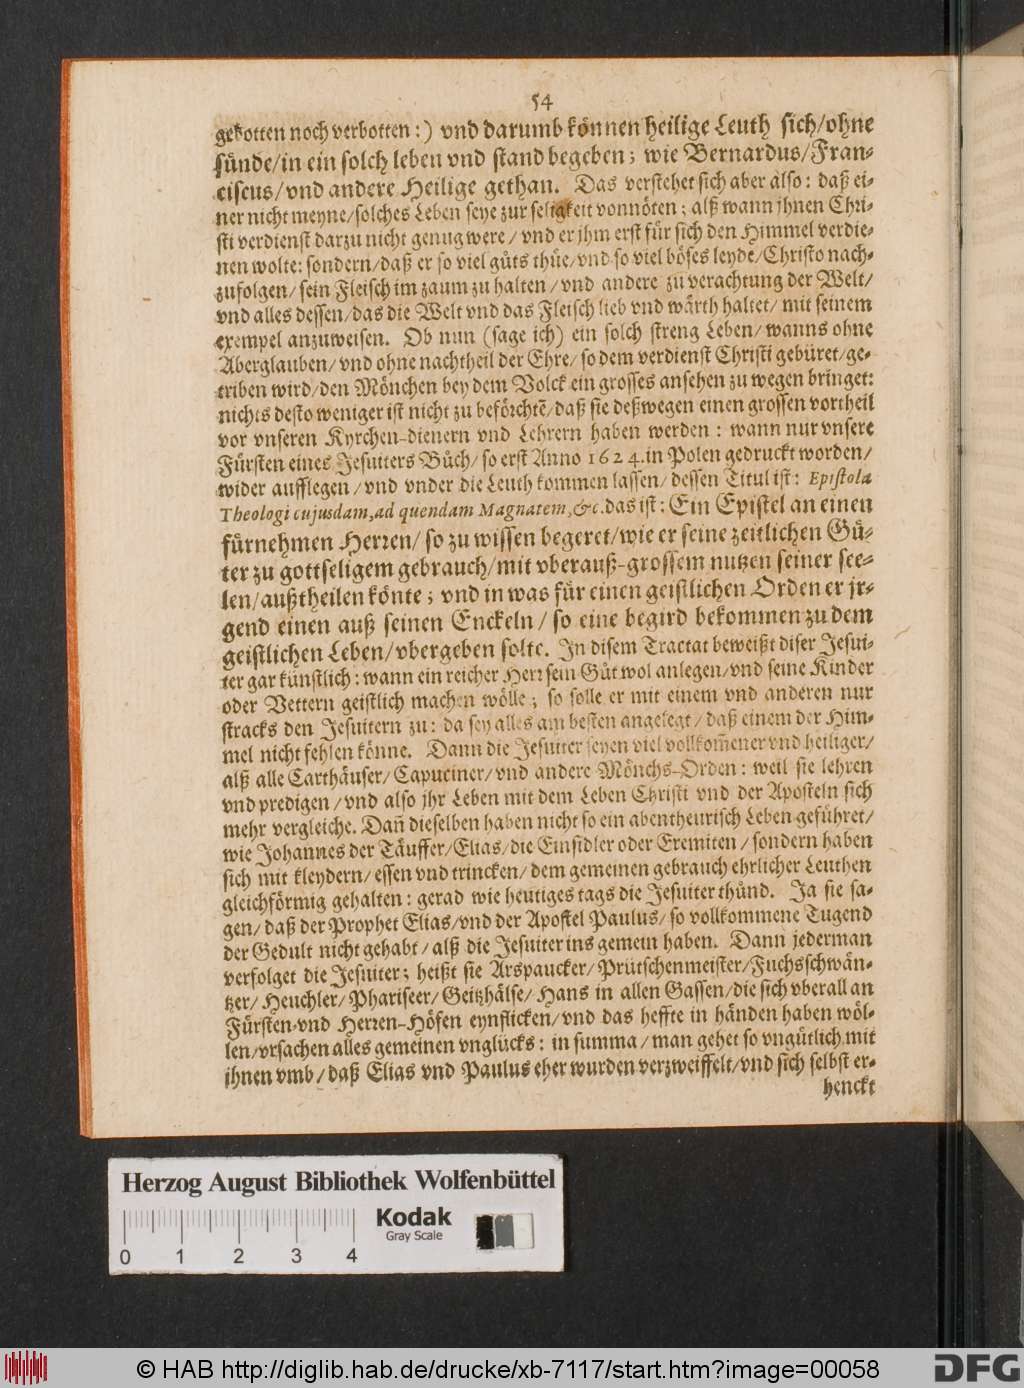 54
gebotten noch verbotten:) vnd darumb können heilige Leuth sich/ohne
sünde/in ein solch leben vnd stand begeben; wie Bernardus/Fran-
ciscus/vnd andere Heilige gethan. Das verstehet sich aber also: daß ei-
ner nicht meyne/solches Leben seye zur seligkeit vonnöten; alß wann jhnen Chri-
sti verdienst darzu nicht genug were/vnd er jhm erst für sich den Himmel verdie-
nen wolte: sondern/daß er so viel gůts thüe/vnd so viel böses leyde/Christo nach-
zufolgen/sein Fleisch im zaum zu halten/vnd andere zu verachtung der Welt/
vnd alles dessen/das die Welt vnd das Fleisch lieb vnd wärth haltet/mit seinem
exempel anzuweisen. Ob nun (sage ich) ein solch streng Leben/wanns ohne
Aberglauben/vnd ohne nachtheil der Ehre/so dem verdienst Christi gebüret/ge-
triben wird/den Mönchen bey dem Volck ein grosses ansehen zu wegen bringet:
nichts desto weniger ist nicht zu beförchtē/daß sie deßwegen einen grossen vortheil
vor vnseren Kyrchen-dienern vnd Lehrern haben werden: wann nur vnsere
Fürsten eines Jesuiters Bůch/so erst Anno 1624. in Polen gedruckt worden/
wider aufflegen/vnd vnder die Leuth kommen lassen/dessen Titul ist: Epistola
Theologi cujusdam, ad quendam Magnatem, &c. das ist: Ein Epistel an einen
fürnehmen Herren/so zu wissen begeret/wie er seine zeitlichen Gü-
ter zu gottseligem gebrauch/mit vberauß-grossem nutzen seiner see-
len/außtheilen könte; vnd in was für einen geistlichen Orden er jr-
gend einen auß seinen Enckeln/so eine begird bekommen zu dem
geistlichen Leben/vbergeben solte. In disem Tractat beweißt diser Jesui-
ter gar künstlich: wann ein reicher Herr sein Gůt wol anlegen/vnd seine Kinder
oder Vettern geistlich machen wölle; so solle er mit einem vnd anderen nur
stracks den Jesuitern zu: da sey alles am besten angelegt/daß einem der Him-
mel nicht fehlen könne. Dann die Jesuiter seyen viel vollkom̄ener vnd heiliger/
alß alle Carthäuser/Capuciner/vnd andere Mönchs-Orden: weil sie lehren
vnd predigen/vnd also jhr Leben mit dem Leben Christi vnd der Aposteln sich
mehr vergleiche. Dan̄ dieselben haben nicht so ein abentheurisch Leben geführet/
wie Johannes der Täuffer/Elias/die Einsidler oder Eremiten/sondern haben
sich mit kleydern/essen vnd trincken/dem gemeinen gebrauch ehrlicher Leuthen
gleichförmig gehalten: gerad wie heutiges tags die Jesuiter thünd. Ja sie sa-
gen/daß der Prophet Elias/vnd der Apostel Paulus/so vollkommene Tugend
der Gedult nicht gehabt/alß die Jesuiter ins gemein haben. Dann jederman
verfolget die Jesuiter; heißt sie Arspaucker/Prütschenmeister/Fuchsschwän-
tzer/Heuchler/Phariseer/Geitzhälse/Hans in allen Gassen/die sich vberall an
Fürsten-vnd Herren-Höfen eynflicken/vnd das heffte in händen haben wöl-
len/vrsachen alles gemeinen vnglücks: in summa/man gehet so vngütlich mit
ihnen vmb/daß Elias vnd Paulus eher wurden verzweiffelt/vnd sich selbst er-
henckt
Herzog August Bibliothek Wolfenbüttel
Kodak
Gray Scale
0 1 2 3 4
© HAB http://diglib.hab.de/drucke/xb-7117/start.htm?image=00058
DFG